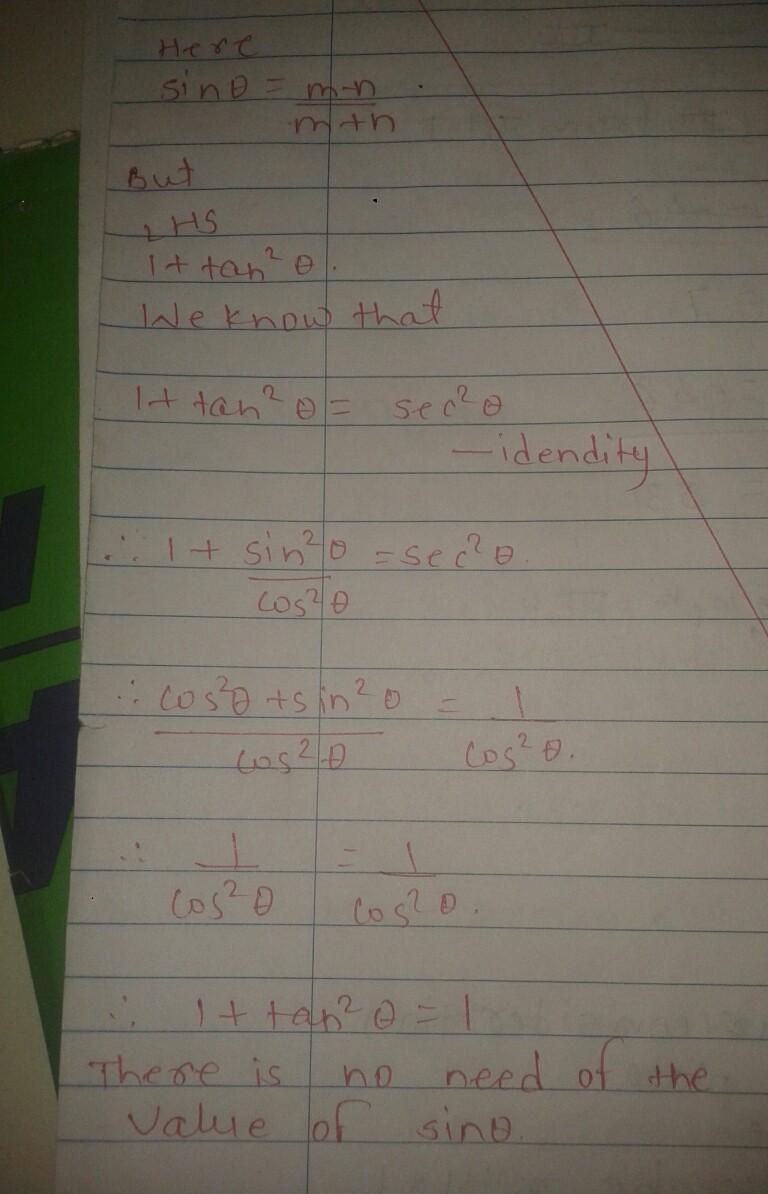 Here
sinθ = m-n / m+n .
But
LHS
1 + tan² θ.
We know that
1 + tan² θ = sec² θ
— idendity
∴ 1 + sin² θ / cos² θ = sec² θ.
∴ cos²θ + sin² θ / cos² θ = 1 / cos² θ.
∴ 1 / cos² θ = 1 / cos² θ.
∴ 1 + tan² θ = 1
There is no need of the
value of sinθ.